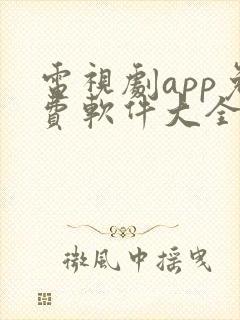 電視劇app免
費軟件大全
微風中搖曳